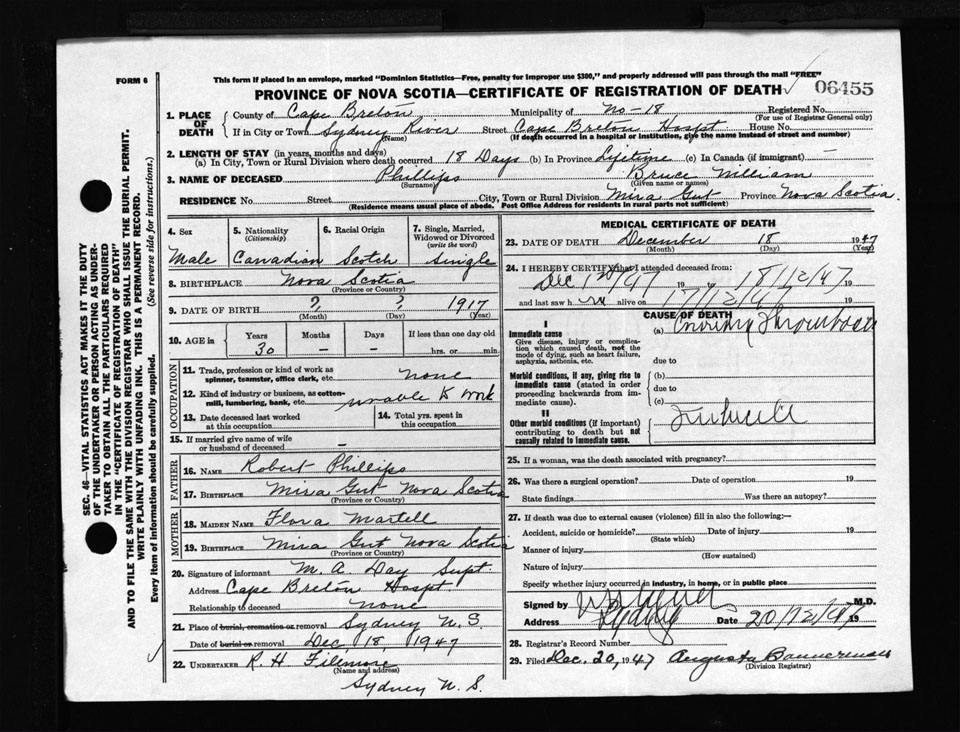 FORM 6
This form if placed in an envelope, marked "Dominion Statistics—Free, penalty for improper use $300," and properly addressed will pass through the mail "FREE"
PROVINCE OF NOVA SCOTIA—CERTIFICATE OF REGISTRATION OF DEATH
06455
1. PLACE OF DEATH
County of Cape Breton Municipality of No-18 Registered No.
(For use of Registrar General only)
If in City or Town Sydney River Street Cape Breton Hospt House No.
(Name) (If death occurred in a hospital or institution, give the name instead of street and number)
2. LENGTH OF STAY (in years, months and days)
(a) In City, Town or Rural Division where death occurred 18 Days (b) In Province Lifetime (c) In Canada (if immigrant) —
3. NAME OF DECEASED Phillips Bruce William
(Surname) (Given name or names)
RESIDENCE No. Street City, Town or Rural Division Mira Gut Province Nova Scotia.
(Residence means usual place of abode. Post Office Address for residents in rural parts not sufficient)
4. Sex
Male
5. Nationality (Citizenship)
Canadian
6. Racial Origin
Scotch
7. Single, Married, Widowed or Divorced (write the word)
Single
8. BIRTHPLACE Nova Scotia
(Province or Country)
9. DATE OF BIRTH ? ? 1917
(Month) (Day) (Year)
10. AGE in Years Months Days If less than one day old
30 — — hrs. or min.
OCCUPATION
11. Trade, profession or kind of work as spinner, teamster, office clerk, etc. none
12. Kind of industry or business, as cotton-mill, lumbering, bank, etc. unable to work
13. Date deceased last worked at this occupation
14. Total yrs. spent in this occupation
15. If married give name of wife or husband of deceased —
FATHER
16. NAME Robert Phillips
17. BIRTHPLACE Mira Gut Nova Scotia
(Province or Country)
MOTHER
18. MAIDEN NAME Flora Martell
19. BIRTHPLACE Mira Gut Nova Scotia
(Province or Country)
20. Signature of informant M. A. Day Supt.
Address Cape Breton Hospt.
Relationship to deceased none
21. Place of burial, cremation or removal Sydney N.S.
Date of burial or removal Dec 18, 1947
22. UNDERTAKER R. H Fillmore
(Name and address)
Sydney N. S.
MEDICAL CERTIFICATE OF DEATH
23. DATE OF DEATH December 18 1947
(Month) (Day) (Year)
24. I HEREBY CERTIFY that I attended deceased from:
Dec 1 19 to 18/12/47 19
and last saw h alive on 17/12/4 19
CAUSE OF DEATH
I
Immediate cause
Give disease, injury or complication which caused death, not the mode of dying, such as heart failure, asphyxia, asthenia, etc.
(a)
due to
Morbid conditions, if any, giving rise to immediate cause (stated in order proceeding backwards from immediate cause).
(b)
due to
(c)
II
Other morbid conditions (if important) contributing to death but not causally related to immediate cause.
25. If a woman, was the death associated with pregnancy?
26. Was there a surgical operation? Date of operation 19
State findings Was there an autopsy?
27. If death was due to external causes (violence) fill in also the following:—
Accident, suicide or homicide? Date of injury 19
(State which)
Manner of injury
(How sustained)
Nature of injury
Specify whether injury occurred in industry, in home, or in public place
Signed by M.D.
Address Sydney Date 20/12/47 19
28. Registrar's Record Number
29. Filed Dec. 20, 1947 Augusta Bannerman
(Division Registrar)
SEC. 46—VITAL STATISTICS ACT MAKES IT THE DUTY
OF THE UNDERTAKER OR PERSON ACTING AS UNDER-
TAKER TO OBTAIN ALL THE PARTICULARS REQUIRED
IN THE "CERTIFICATE OF REGISTRATION OF DEATH"
AND TO FILE THE SAME WITH THE DIVISION REGISTRAR WHO SHALL ISSUE THE BURIAL PERMIT.
WRITE PLAINLY WITH UNFADING INK. THIS IS A PERMANENT RECORD.
Every item of information should be carefully supplied. (See reverse side for instructions.)